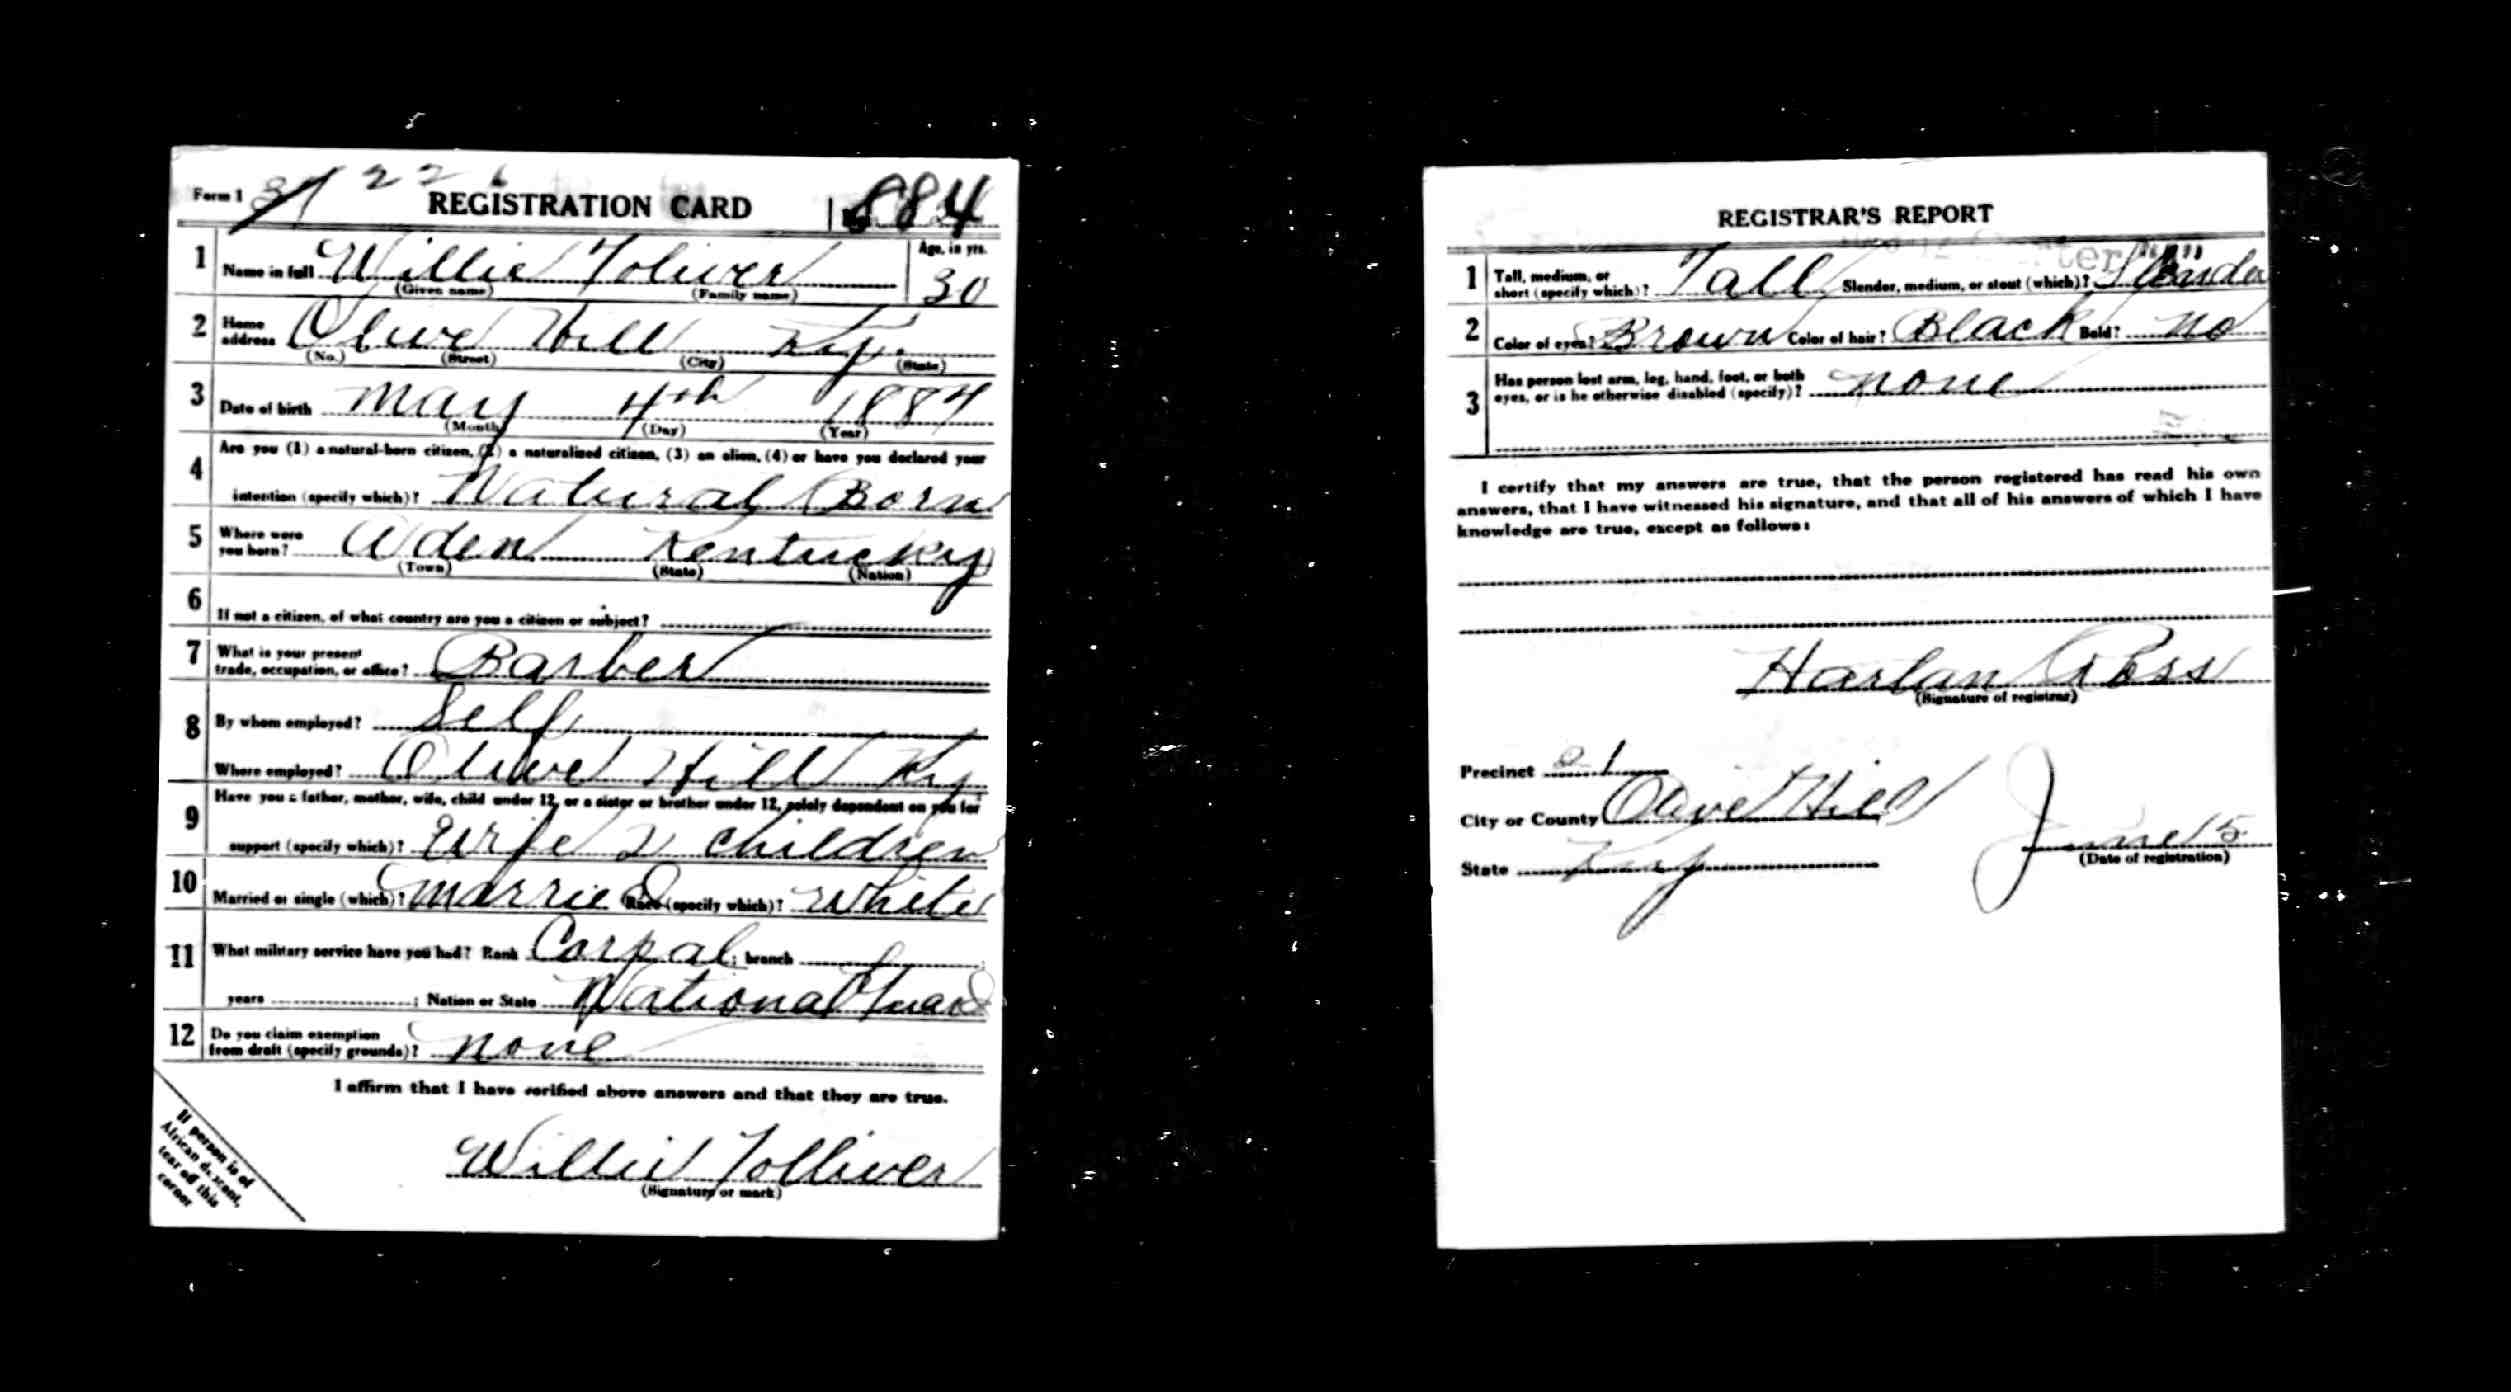 Form 1 37 22 6 REGISTRATION CARD 884
1 Name in full Willie Toliver Age, in yrs.
(Given name) (Family name) 30
2 Home address Olive Hill Ky.
(No.) (Street) (City) (State)
3 Date of birth May 4th 1887
(Month) (Day) (Year)
4 Are you (1) a natural-born citizen, (2) a naturalized citizen, (3) an alien, (4) or have you declared your
intention (specify which)? Natural Born
5 Where were
you born? Aden Kentucky
(Town) (State) (Nation)
6 If not a citizen, of what country are you a citizen or subject?
7 What is your present
trade, occupation, or office? Barber
8 By whom employed? Self
Where employed? Olive Hill Ky
9 Have you a father, mother, wife, child under 12, or a sister or brother under 12, solely dependent on you for
support (specify which)? Wife 2 children
10 Married or single (which)? Married Race (specify which)? White
11 What military service have you had? Rank Corpal; branch
years ; Nation or State National Guard
12 Do you claim exemption
from draft (specify grounds)? None
I affirm that I have verified above answers and that they are true.
Willie Tolliver
(Signature or mark)
If person is of
African descent,
tear off this
corner
REGISTRAR'S REPORT
1 Tall, medium, or
short (specify which)? Tall Slender, medium, or stout (which)? Slender
2 Color of eyes? Brown Color of hair? Black Bald? No
3 Has person lost arm, leg, hand, foot, or both
eyes, or is he otherwise disabled (specify)? None
I certify that my answers are true, that the person registered has read his own
answers, that I have witnessed his signature, and that all of his answers of which I have
knowledge are true, except as follows:
Harlan Ross
(Signature of registrar)
Precinct 21
City or County Olive Hill
State Ky
June 5
(Date of registration)